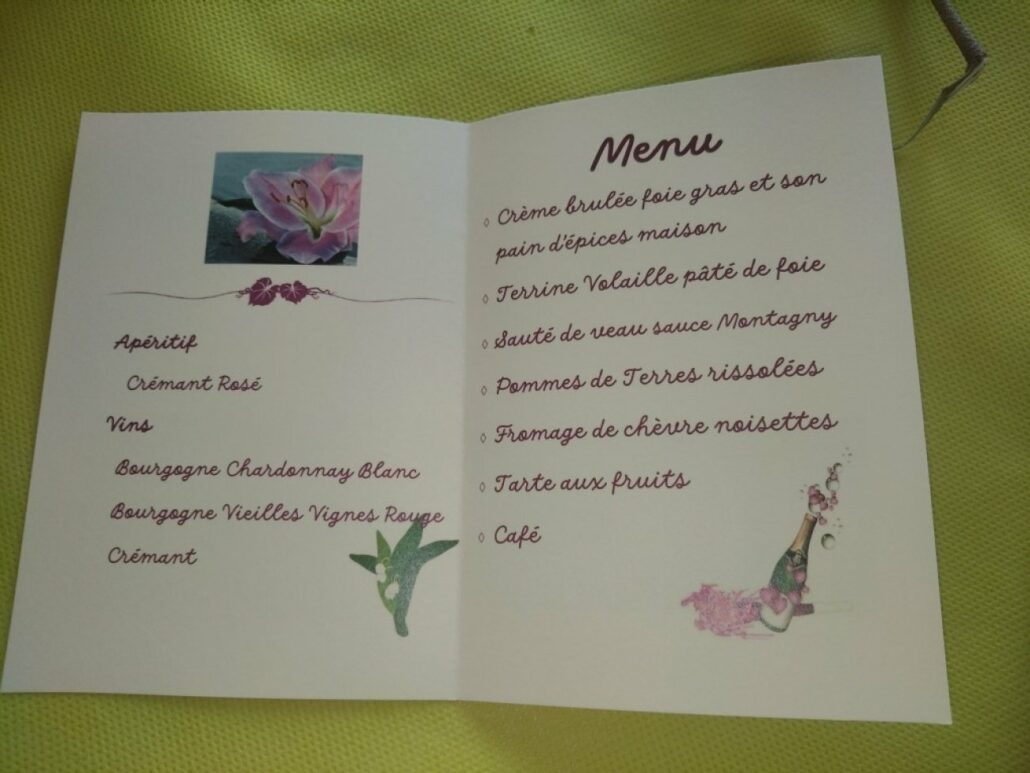 Apéritif
Crémant Rosé
Vins
Bourgogne Chardonnay Blanc
Bourgogne Vieilles Vignes Rouge
Crémant
Menu
◊ Crème brulée foie gras et son
pain d'épices maison
◊ Terrine Volaille pâté de foie
◊ Sauté de veau sauce Montagny
◊ Pommes de Terres rissolées
◊ Fromage de chèvre noisettes
◊ Tarte aux fruits
◊ Café